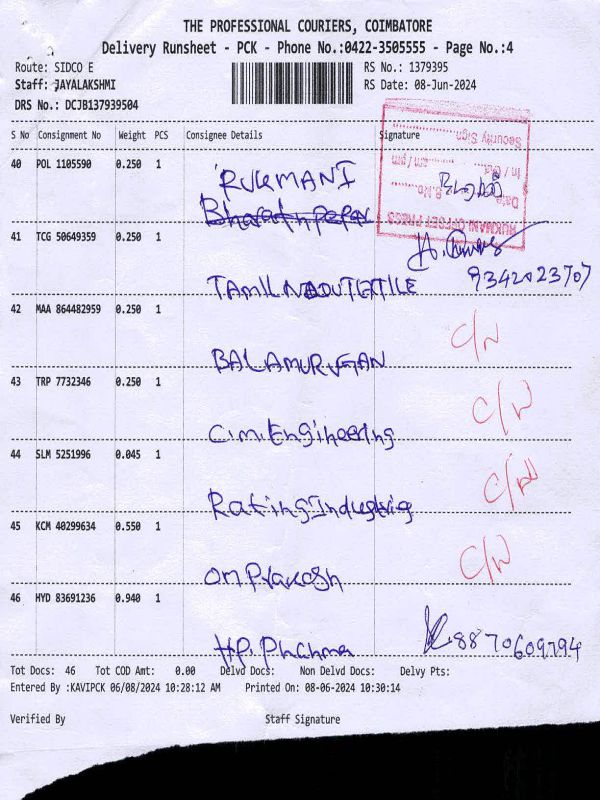 THE PROFESSIONAL COURIERS, COIMBATORE
Delivery Runsheet - PCK - Phone No.:0422-3505555 - Page No.:4
Route: SIDCO E RS No.: 1379395
Staff: JAYALAKSHMI RS Date: 08-Jun-2024
DRS No.: DCJB137939504
S No Consignment No Weight PCS Consignee Details Signature
Security Sign
In / Out am / pm
Date R.No.
RUKMANI OFFSET PRESS
40 POL 1105590 0.250 1 RUKMANI
41 TCG 50649359 0.250 1 TAMILNADUTEXTILE 9342023707
42 MAA 864482959 0.250 1 BALAMURUGAN C/N
43 TRP 7732346 0.250 1 C.M.Engineering C/N
44 SLM 5251996 0.045 1 Rating C/N
45 KCM 40299634 0.550 1 Om Prakash C/N
46 HYD 83691236 0.940 1 H.P. Pharma 8870609794
Tot Docs: 46 Tot COD Amt: 0.00 Delvd Docs: Non Delvd Docs: Delvy Pts:
Entered By :KAVIPCK 06/08/2024 10:28:12 AM Printed On: 08-06-2024 10:30:14
Verified By Staff Signature